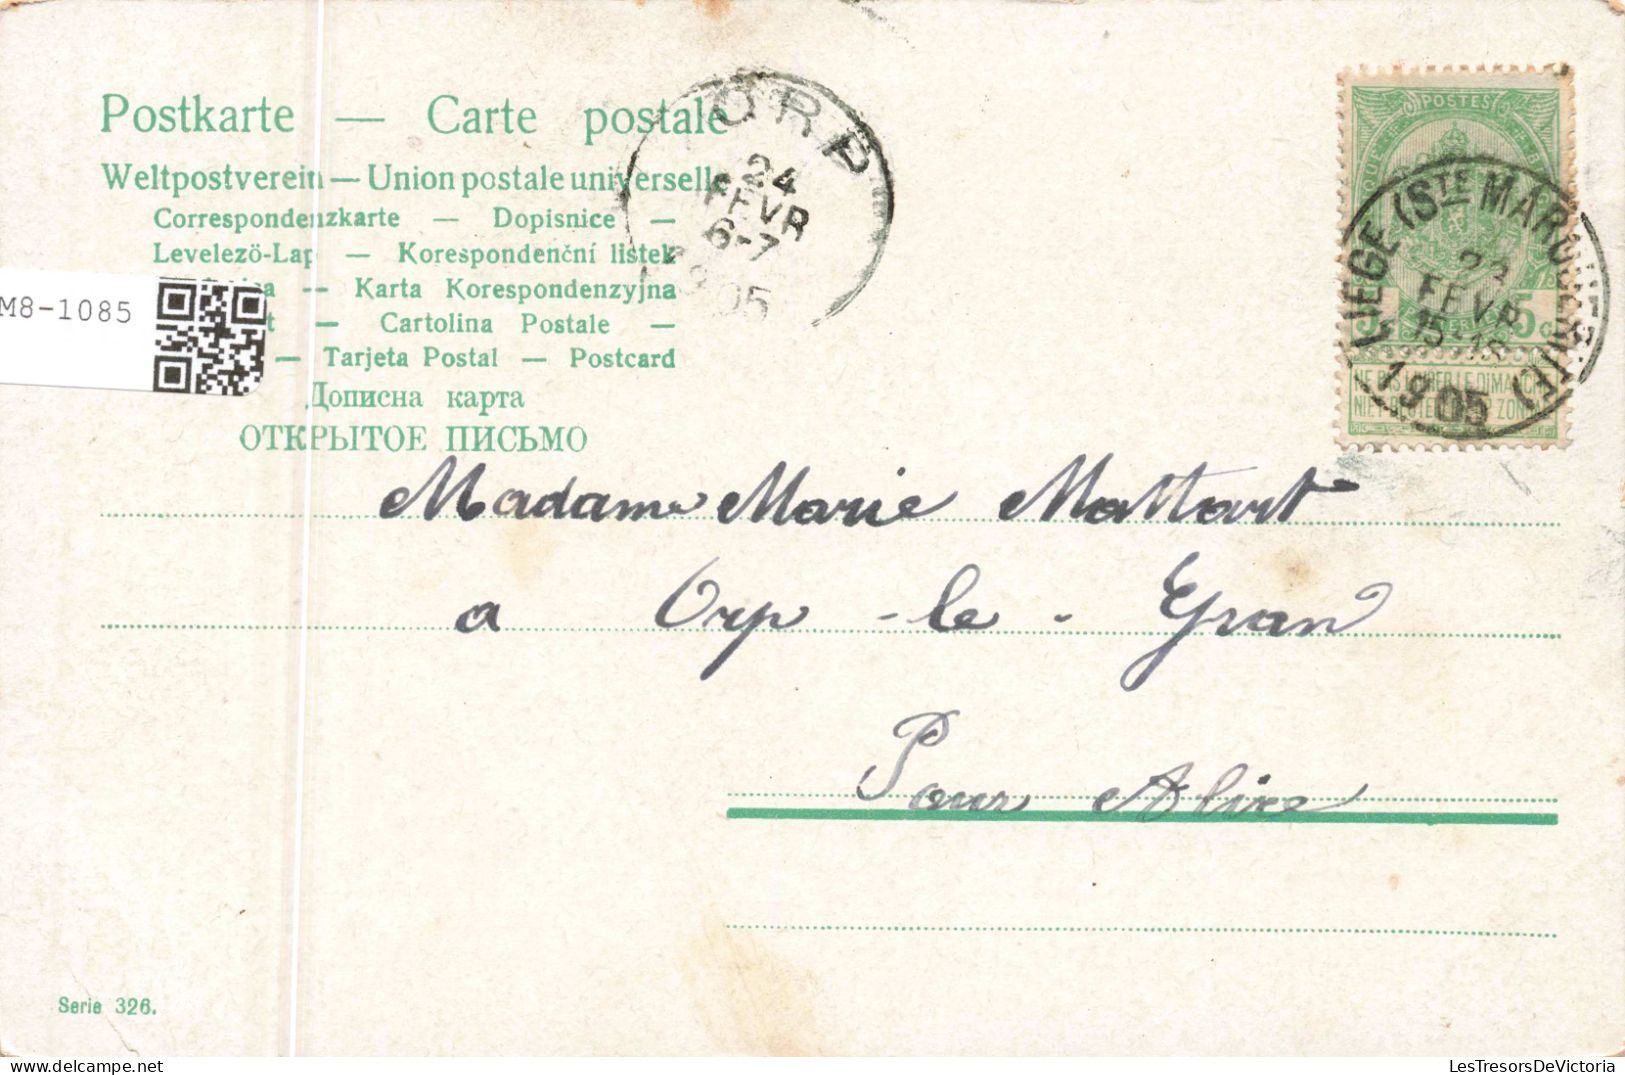 Postkarte — Carte postale
Weltpostverein — Union postale universelle
Correspondenzkarte — Dopisnice —
Levelezö-Lap — Korespondenční listek
— Karta Korespondenzyjna
— Cartolina Postale —
— Tarjeta Postal — Postcard
Дописна карта
ОТКРЫТОЕ ПИСЬМО
M8-1085
ORP
24
FEVR
6-7
POSTES
5 5c
NE PAS LIVRER LE DIMANCHE
LIEGE (STE MARGUERITE)
23
FEVR
1905
Madame Marie Mattart
a Orp-le-Gran
Pour Alice
Serie 326.
LesTresorsDeVictoria